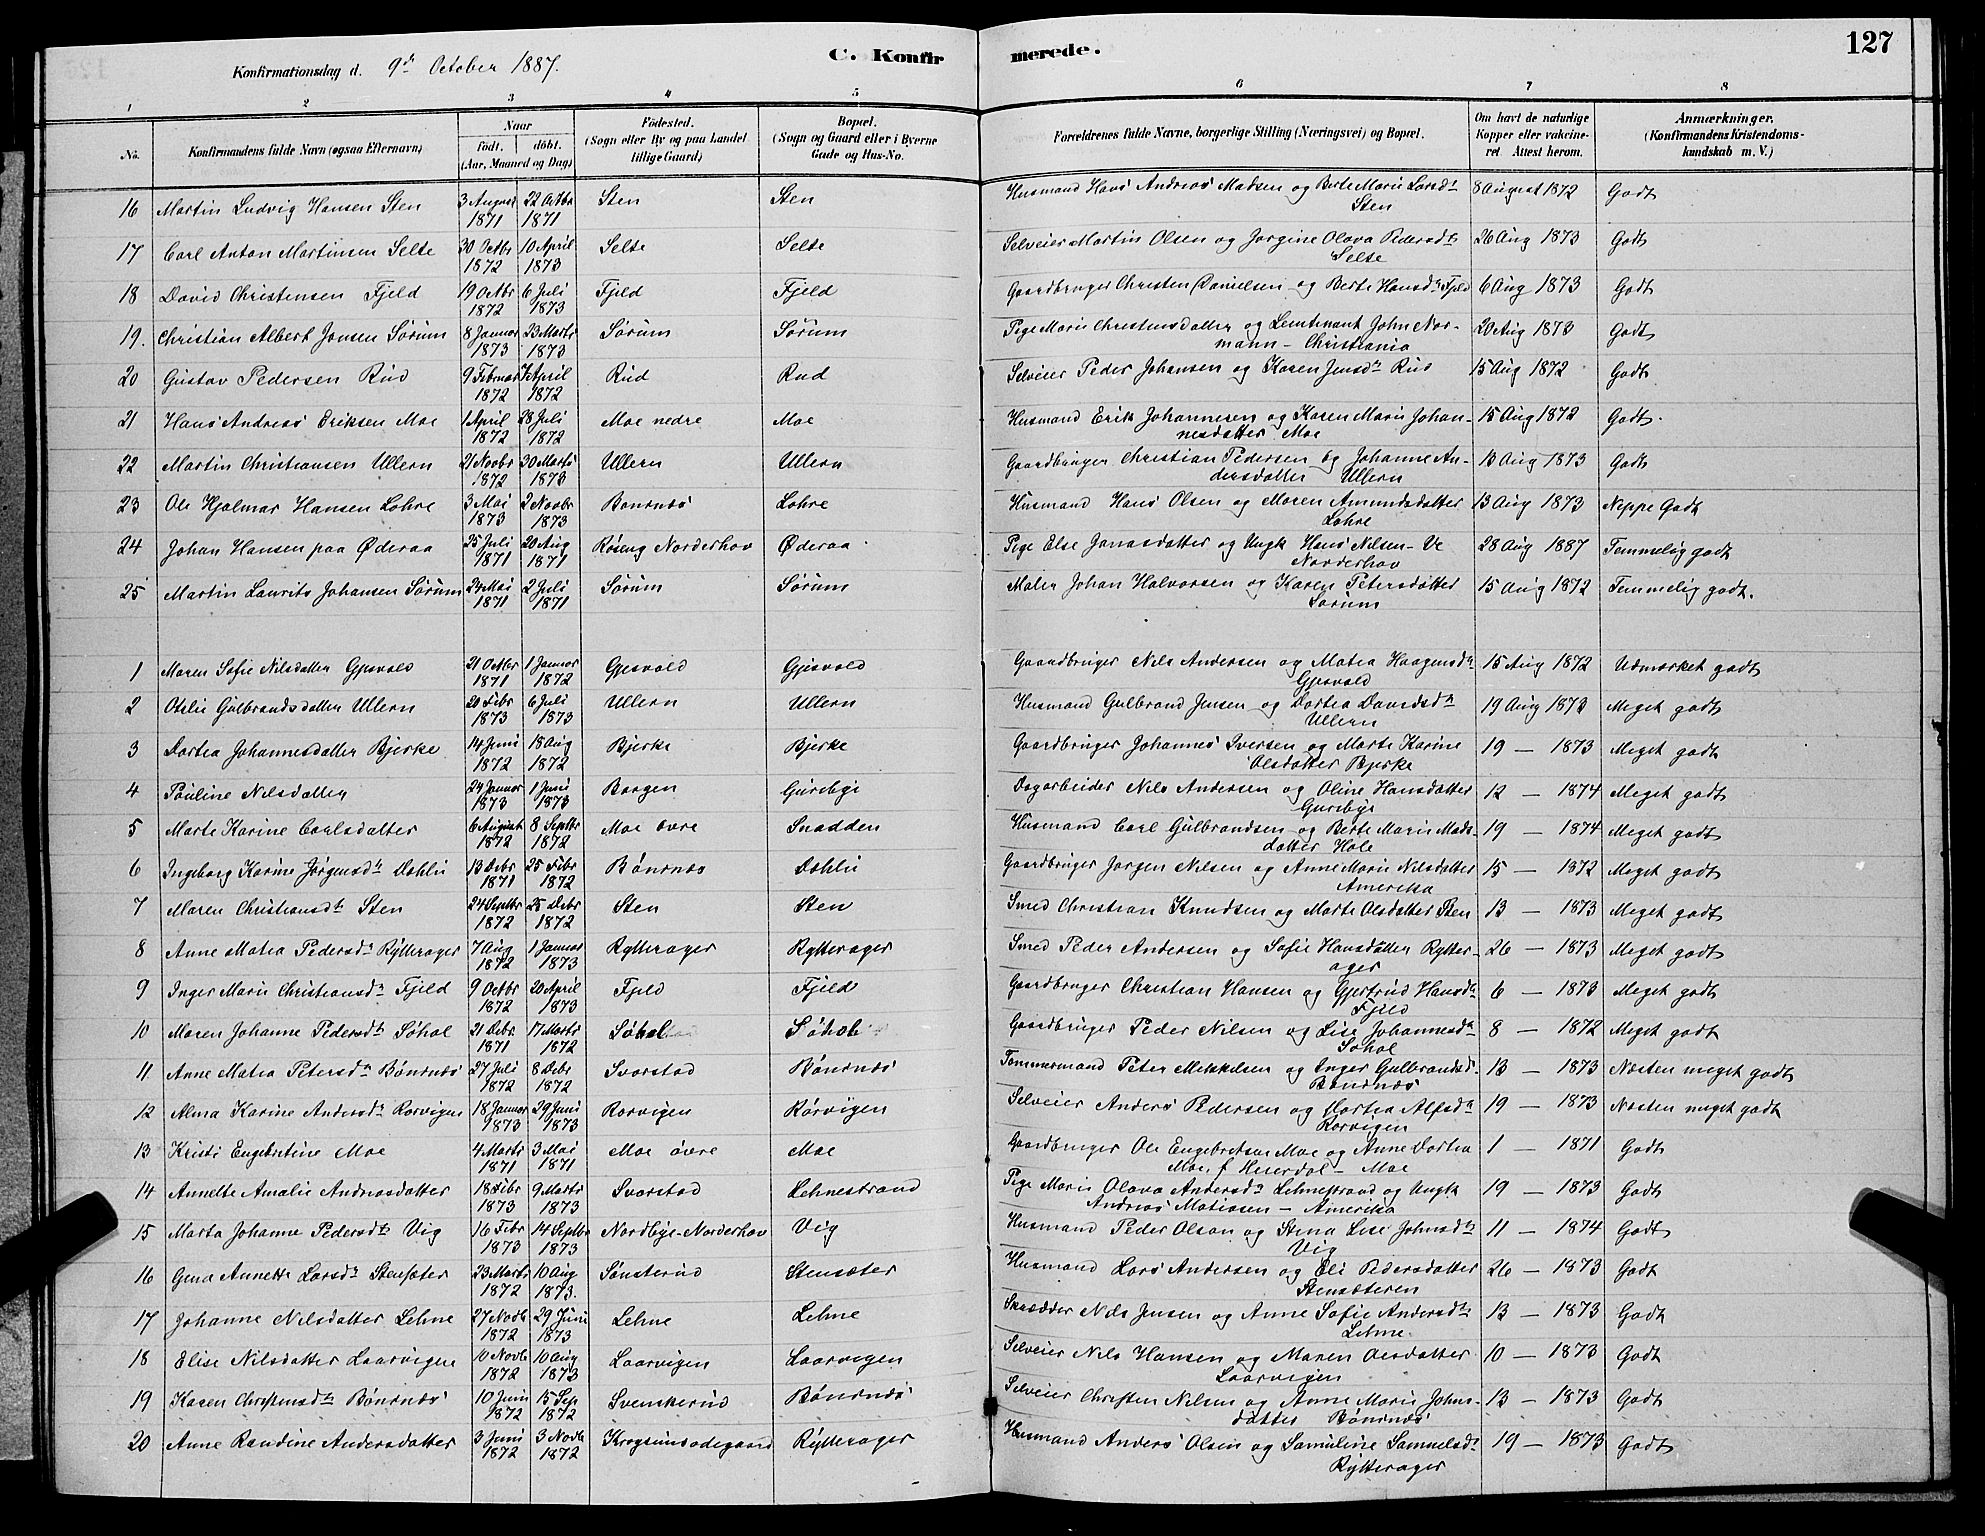 127
Konfirmationsdag d. 9de October 1887.
C. Konfirmerede.
1 2 3 4 5 6 7 8
No. Konfirmandens fulde Navn (ogsaa Efternavn) Naar født, døbt. (Aar, Maaned og Dag) Fødested. (Sogn eller By og paa Landet tillige Gaard) Bopæl. (Sogn og Gaard eller i Byerne Gade og Hus-No. Forældrenes fulde Navne, borgerlige Stilling (Næringsvei) og Bopæl. Om havt de naturlige Kopper eller vakcineret. Attest herom. Anmærkninger. (Konfirmandens Kristendomskundskab m. V.)
16 Martin Ludvig Hansen Sten 3 August 1871 22 Octbr 1871 Sten Sten Husmand Hans Andreas Madsen og Berte Marie Larsdtr Sten 8 August 1872 Godt
17 Carl Anton Martinsen Selte 30 Octbr 1872 10 April 1873 Selte Selte Selveier Martin Olsen og Jørgine Olava Pedersdtr Selte 26 Aug 1873 Godt
18 David Christensen Fjeld 19 Octbr 1872 6 Juli 1873 Fjeld Fjeld Gaardbruger Christen Danielsen og Berte Hansdtr Fjeld 6 Aug 1873 Godt
19. Christian Albert Jonsen Sørum 8 Januar 1873 23 Marts 1873 Sørum Sørum Pige Marie Christensdatter og Leutenant John Normann - Christiania 20 Aug 1873 Godt
20 Gustav Pedersen Rud 9 Februar 1872 7 April 1872 Rud Rud Selveier Peder Johansen og Karen Jensdtr Rud 15 Aug 1872 Godt
21 Hans Andreas Eriksen Moe 1 April 1872 28 Juli 1872 Moe nedre Moe Husmand Erik Johannesen og Karen Marie Johannesdatter Moe 15 Aug 1872 Godt.
22 Martin Christiansen Ullern 21 Novbr 1872 30 Marts 1873 Ullern Ullern Gaardbruger Christian Pedersen og Johanne Andersdatter Ullern 13 Aug 1873 Godt
23 Ole Hjalmar Hansen Lohre 3 Mai 1873 2 Novbr 1873 Bønsnæs Lohre Husmand Hans Olsen og Maren Amundsdatter Lohre 13 Aug 1873 Neppe Godt
24 Johan Hansen paa Øderaa 25 Juli 1871 20 Aug 1871 Røseng Norderhov Øderaa Pige Else Jonasdatter og Ungk Hans Nilsen - Ve Norderhov 28 Aug 1887 Temmelig godt
25 Martin Laurits Johansen Sørum 24 Mai 1871 2 Juli 1871 Sørum Sørum Maler Johan Halvorsen og Karen Petersdatter Sørum 15 Aug 1872 Temmelig godt.
1 Maren Sofie Nilsdatter Gjesvold 21 Octbr 1871 1 Januar 1872 Gjesvold Gjesvold Gaardbruger Nils Andersen og Matea Haagensdtr Gjesvold 15 Aug 1872 Udmærket godt
2 Otelie Gulbrandsdatter Ullern 20 Febr 1873 6 Juli 1873 Ullern Ullern Husmand Gulbrand Jensen og Dortea Davidsdtr Ullern 19 Aug 1873 Meget godt
3 Dortea Johannesdatter Bjerke 14 Juni 1872 18 Aug 1872 Bjerke Bjerke Gaardbruger Johannes Iversen og Marte Karine Olsdatter Bjerke 19 — 1873 Meget godt
4 Pauline Nilsdatter 24 Januar 1873 1 Juni 1873 Borgen Guribye Dagarbeider Nils Andersen og Oline Hansdatter Guribye 12 — 1874 Meget godt
5 Marte Karine Carlsdatter 6 August 1872 8 Septbr 1872 Moe övre Snadden Husmand Carl Gulbrandsen og Berte Marie Madsdatter Hole 19 — 1874 Meget godt
6 Ingeborg Karine Jørgensdtr Dahlie 13 Debr 1871 25 Febr 1872 Bønsnæs Dahlie Gaardbruger Jørgen Nilsen og Anne Marie Nilsdatter Amerika 15 — 1872 Meget godt
7 Maren Christiansdtr Sten 24 Septbr 1872 25 Debr 1872 Sten Sten Smed Christian Knudsen og Marte Olsdatter Sten 13 — 1873 Meget godt
8 Anne Matea Pedersdtr Rytterager 7 Aug 1872 1 Januar 1873 Rytterager Rytterager Smed Peder Andersen og Sofie Hansdatter Rytterager 26 — 1873 Meget godt
9 Inger Marie Christiansdtr Fjeld 9 Octbr 1872 20 April 1873 Fjeld Fjeld Gaardbruger Christian Hansen og Gjertrud Hansdtr Fjeld 6 — 1873 Meget godt
10 Maren Johanne Pedersdtr Søhol 21 Debr 1871 17 Marts 1872 Søhol Søhol Gaardbruger Peder Nilsen og Lise Johannesdtr Søhol 8 — 1872 Meget godt
11 Anne Matea Petersdtr Bønsnæs 27 Juli 1872 8 Debr 1872 Svarstad Bønsnæs Tømmermand Peter Mekkelsen og Inger Gulbrandsd. Bønsnæs 13 — 1873 Næsten meget godt
12 Alma Karine Andersdtr Rørvigen 18 Januar 1873 29 Juni 1873 Rørvigen Rørvigen Selveier Anders Pedersen og Martea Alfsdtr Rørvigen 19 — 1873 Næsten meget godt
13 Kristi Engebretine Moe 4 Marts 1871 3 Mai 1871 Moe övre Moe Gaardbruger Ole Engebretsen Moe og Anne Dortea Moe, f Heierdal - Moe 1 — 1871 Godt
14 Annette Amalie Andreasdatter 18 Febr 1873 9 Marts 1873 Svarstad Lehnestrand Pige Marie Olava Andersdtr Lehnestrand og Ungk Andreas Matiasen - Amerika 19 — 1873 Godt
15 Marta Johanne Pedersdtr Vig 16 Febr 1873 14 Septbr 1873 Nordbye-Norderhov Vig Husmand Peder Olsen og Stena Lise Johnsdtr Vig 11 — 1874 Godt
16 Gina Annette Larsdtr Stensæter 23 Marts 1872 10 Aug 1873. Sønsterud Stensæter Husmand Lars Andersen og Eli Pedersdatter Stensæteren 26 — 1873 Godt
17 Johanne Nilsdatter Lehne 27 Novb 1872 29 Juni 1873 Lehne Lehne Skrædder Nils Jensen og Anne Sofie Andersdtr Lehne. 13 — 1873 Godt
18 Elise Nilsdatter Laarvigen 10 Novb 1872 10 Aug 1873 Laarvigen Laarvigen Selveier Nils Hansen og Maren Olsdatter Laarvigen 10 — 1873 Godt
19 Karen Christensdtr Bønsnæs 10 Juni 1872 15 Sep 1872 Svenskerud Bønsnæs Selveier Christen Nilsen og Anne Marie Johnsdatter Bønsnæs 13 — 1873 Godt
20 Anne Randine Andersdatter 3 Juni 1872 3 Novb 1872 Krogsundsødegaard Rytterager Husmand Anders Olsen og Samuline Samuelsdtr Rytterager 19 — 1873 Godt